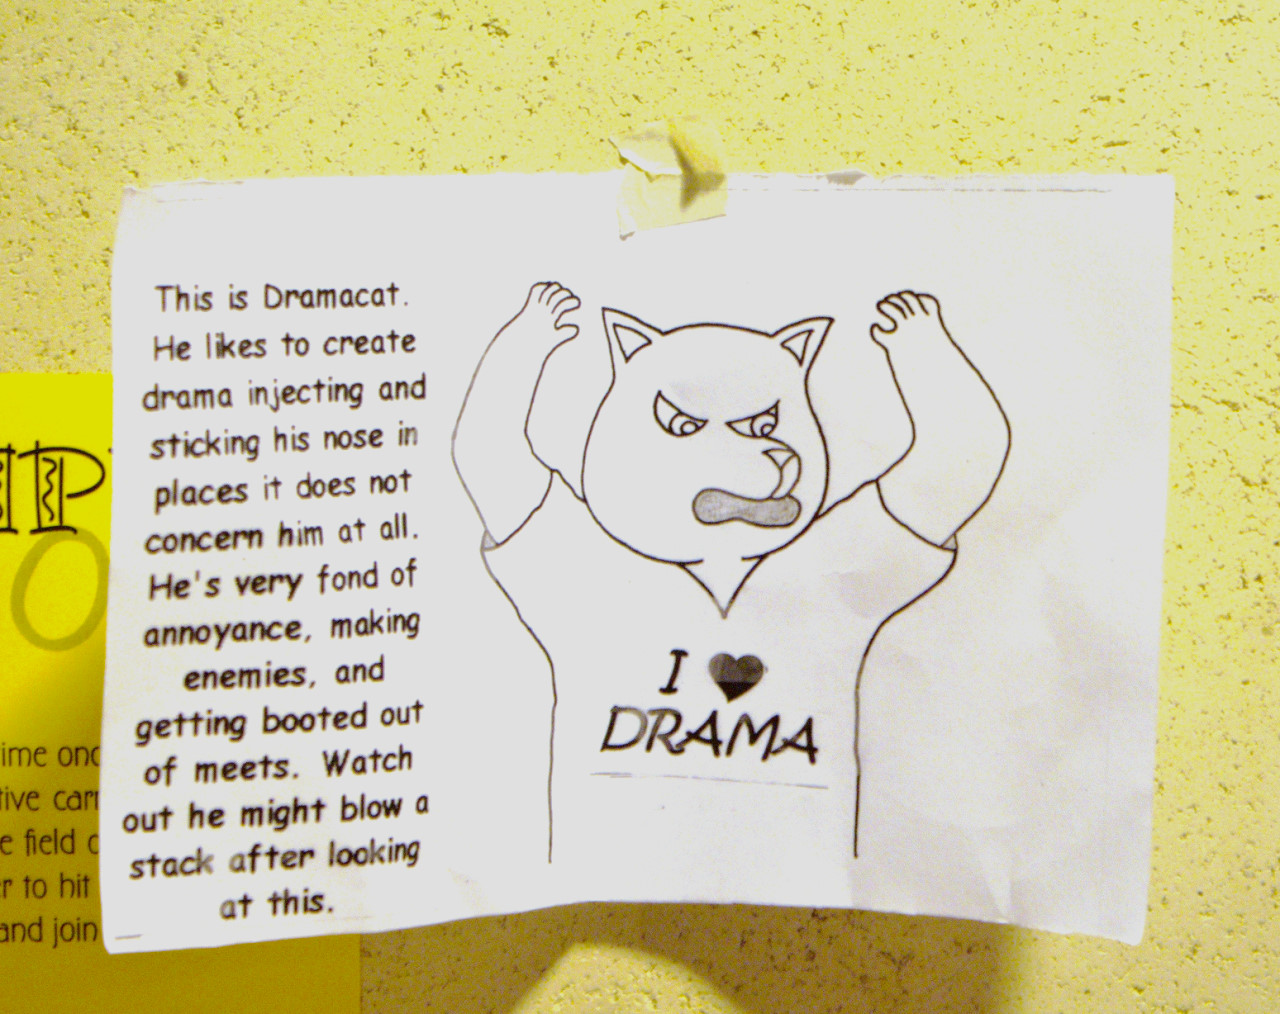 This is Dramacat.
He likes to create
drama injecting and
sticking his nose in
places it does not
concern him at all.
He's very fond of
annoyance, making
enemies, and
getting booted out
of meets. Watch
out he might blow a
stack after looking
at this.
I ♥
DRAMA
P
O
ime
tive
e field
r to hit
and join